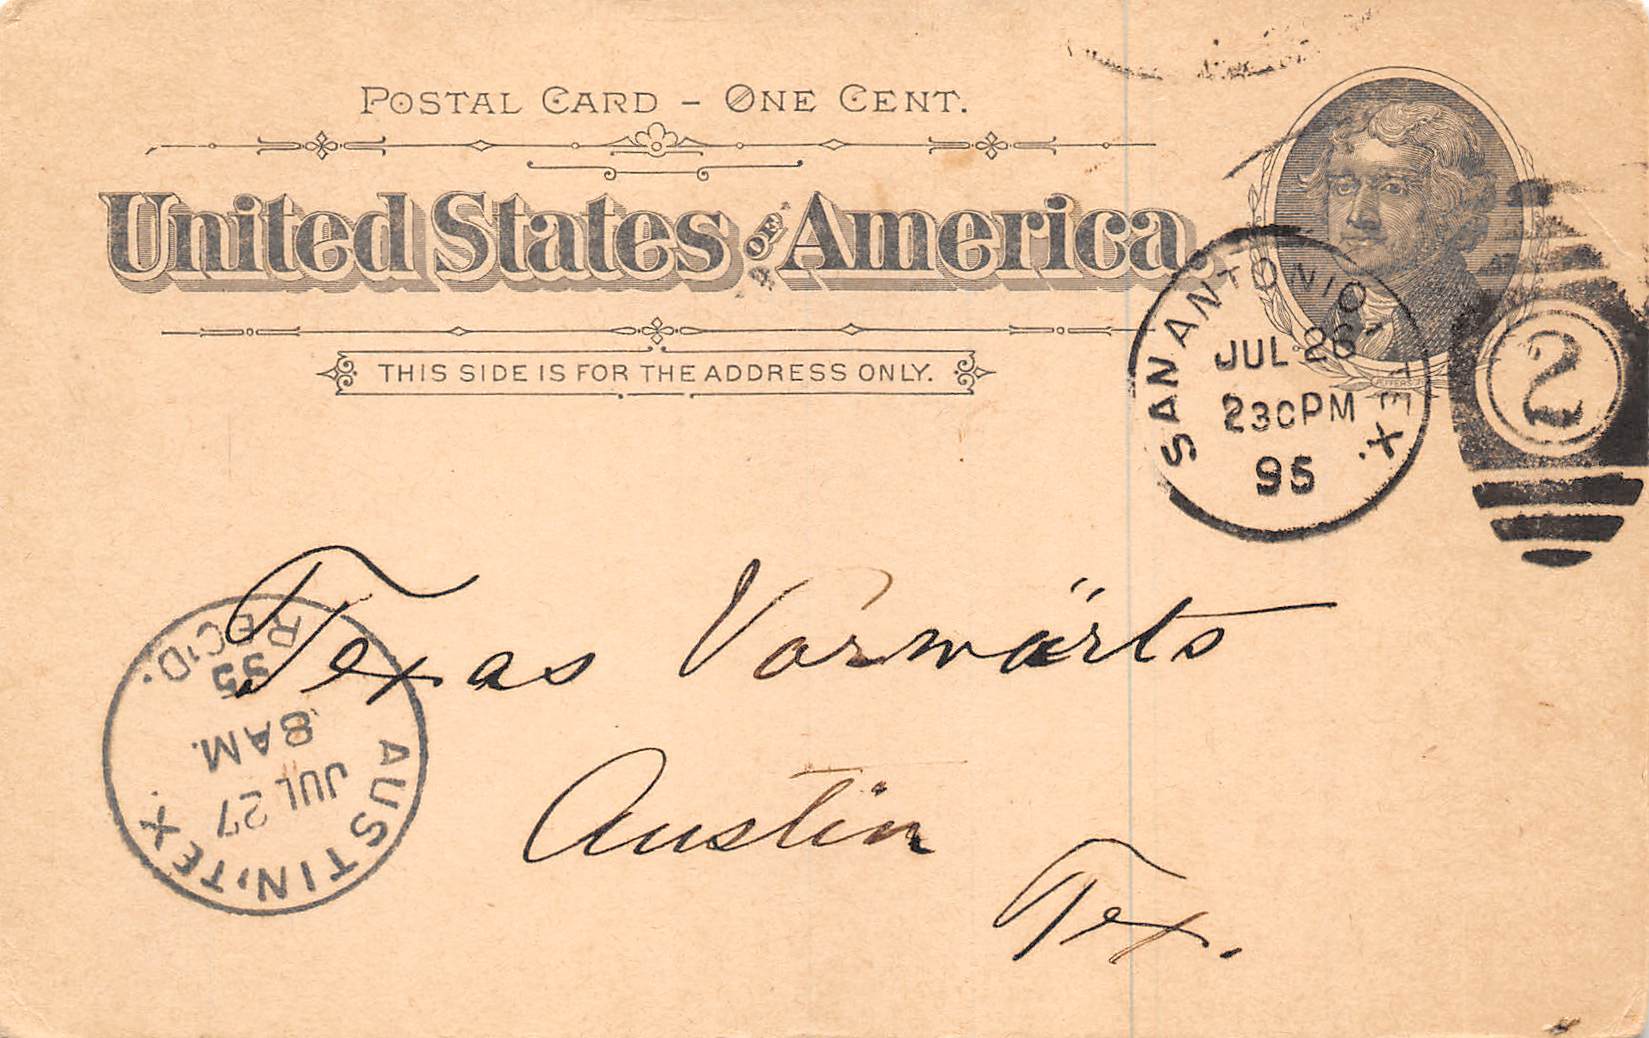 POSTAL CARD - ONE CENT.
United States OF America
THIS SIDE IS FOR THE ADDRESS ONLY.
JEFFERSON
SAN ANTONIO, TEX.
JUL 26
230PM
95
2
Texas Vorwärts
Austin
Tex.
AUSTIN, TEX.
JUL 27
8 AM.
95
REC'D.